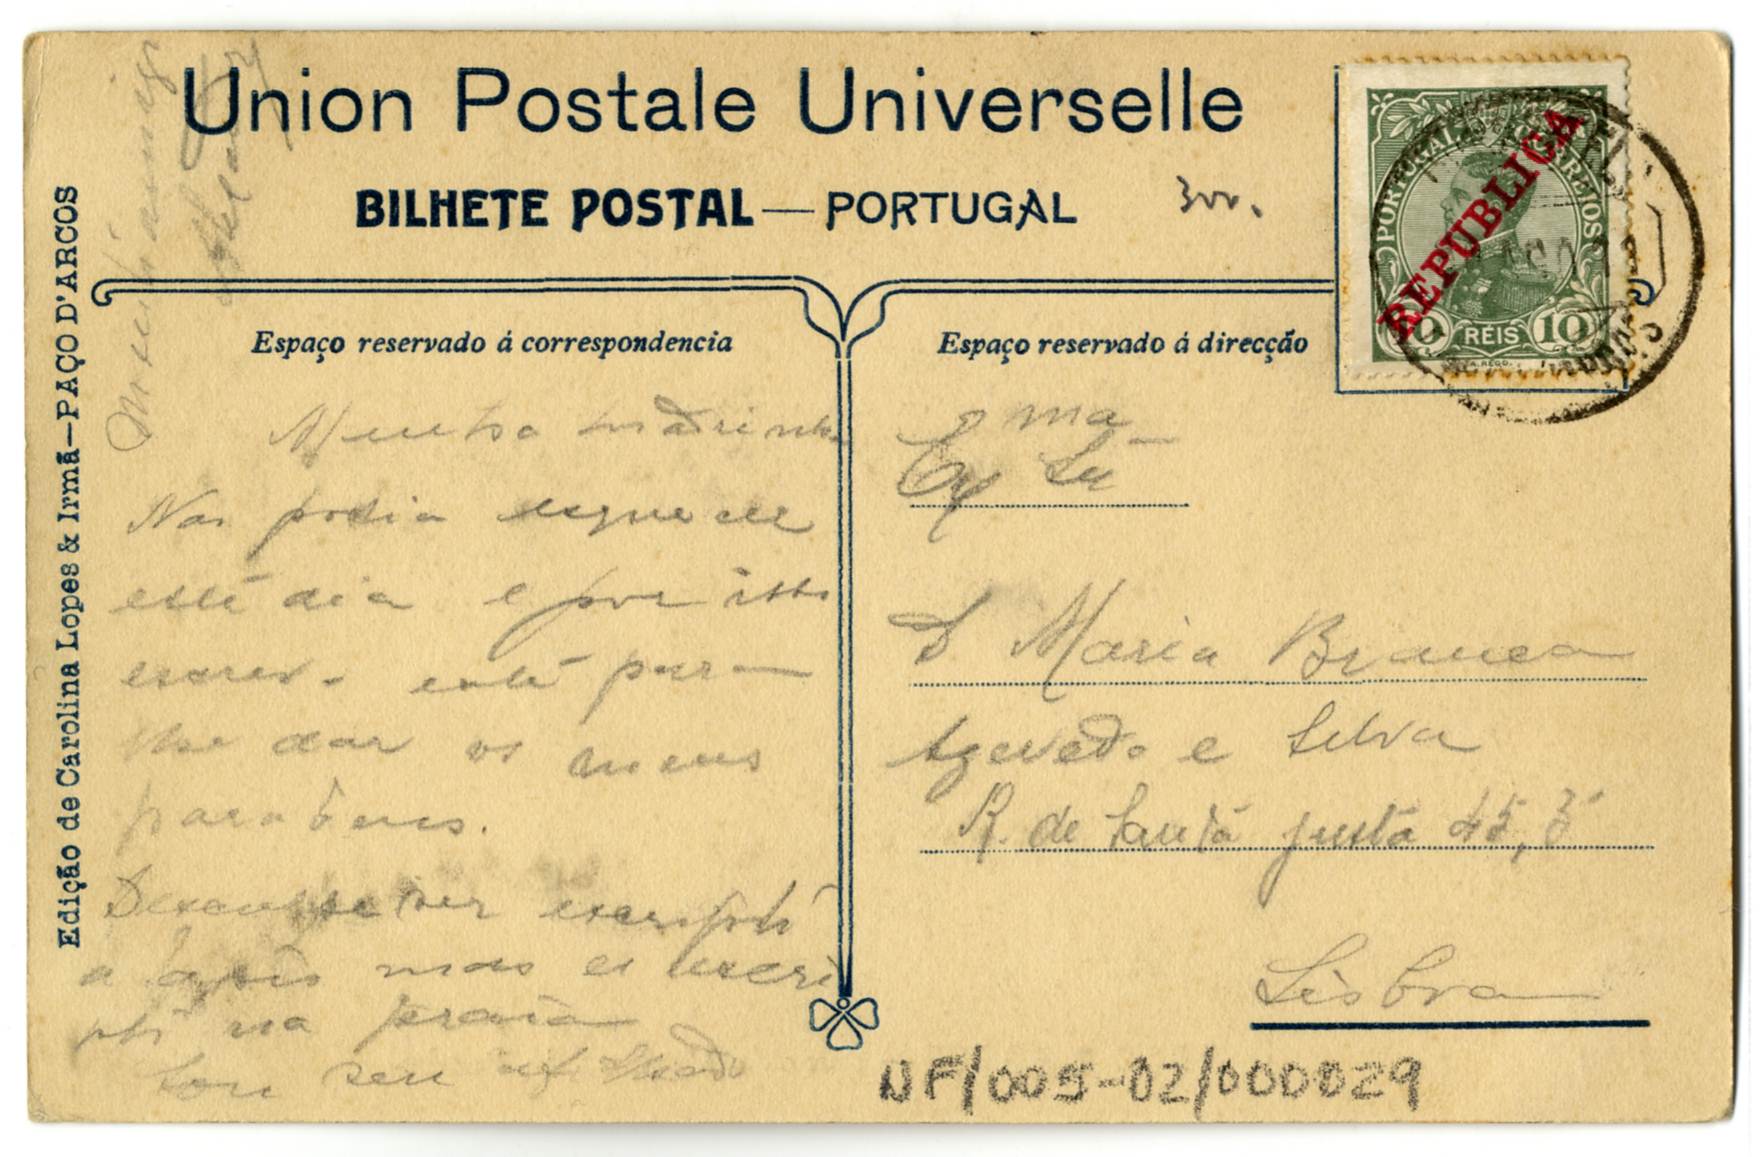 Union Postale Universelle
BILHETE POSTAL — PORTUGAL
300.
PORTUGAL
CORREIOS
REPUBLICA
10 RÉIS 10
Edição de Carolina Lopes & Irmã—PAÇO D'ARCOS
Espaço reservado á correspondencia
Minha madrinha
Não podia esquecer
este dia e por isso
escrevo este para
lhe dar os meus
parabens.
Desculpe ser escripto
a lapis mas é escri
pto na praia
Sou seu afilhado
Espaço reservado á direcção
Exma Sra
D Maria Branca
Azevedo e Silva
R. de Santa Justa 45, 3º
Lisboa
NF/005-02/000029